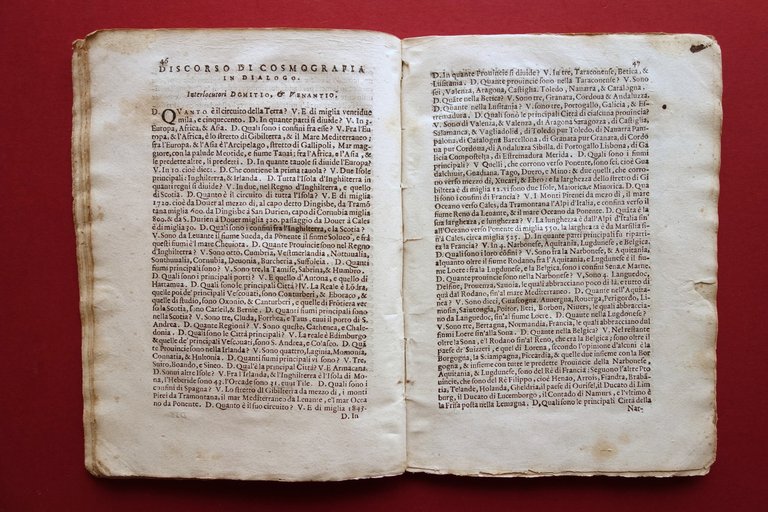 46
DISCORSO DI COSMOGRAFIA
IN DIALOGO.
Interlocutori DOMITIO, & VENANTIO.
D. QVANTO è il circuito della Terra? V. E di miglia ventidue
mila, e cinquecento. D. In quante parti si diuide? V. In 3.
Europa, Africa, & Asia. D. Quali sono i confini fra esse? V. Fra l'Eu
ropa, & l'Africa, è lo stretto di Gibilterra, & il Mare Mediterraneo; fra
l'Europa, & l'Asia è l'Arcipelago, stretto di Gallipoli, Mar mag-
giore, con la palude Meotide, e fiume Tanai; fra l'Africa, e l'Asia, &
le predette altre, il predetti. D. In quante tauole si diuide l'Europa?
V. In 10. cioè dieci. D. Che contiene la prima tauola? V. Due Isole
principali; Inghilterra, & Irlanda. D. Tutta l'Isola d'Inghilterra in
quanti regni si diuide? V. In due, nel Regno d'Inghilterra, e quello
di Scotia. D. Quanto è il circuito di tutta l'Isola? V. E di miglia
1720. cioè da Douer al mezo dì, al capo detto Dingisbe, da Tramō
tana miglia 600. da Dingisbe à San Durien, capo di Cornubia miglia
800. & da S. Durien à Douer miglia 320. passaggio da Douer à Cales
è di miglia 30. D. Quali sono i confini fra l'Inghilterra, e la Scotia?
V. Sono da Leuante il fiume Sueda, da Ponente il fiume Soluco, e fra
questi fiumi è il mare Cheuiota. D. Quante Prouincie sono nel Regno
d'Inghilterra? V. Sono otto, Cumbria, Vestmerlandia, Nottualia,
Northumbalia, Cornubia, Deuonia, Burcheria, Suffolcia. D. Quanti
fiumi principali sono? V. Sono tre, la Tamise, Sabrina, & Humbro.
D. Quali sono i principali porti? V. E quello d'Antona, e quello di
Hartamua. D. Quali sono le principali Città? IV. La Reale è Lōdra,
quelle poi de' principali Vescouati, sono Conturberi, & Eboraco, &
quelle di studio, sono Oxonio, & Canturberi, e quelle di Frōtiera verso
la Scotia, sono Carleil, & Bernic. D. Quanti fiumi principali sono
nella Scotia? V. Sono tre, Cluda, Forthea, e Taus, eui il porto di S.
Andrea. D. Quante Regioni? V. Sono queste, Cathenea, e Chale-
donia. D. Quali sono le Città principali? V. La reale è Edimburgo
& quelle de' principali Vescouati, sono S. Andrea, e Colasco. D. Quā
te Prouincie sono nella Irlanda? V. Sono quattro, Laginia, Momonia,
Connatia, & Hultonia. D. Quanti fiumi principali vi sono? V. Tre,
Suiro, Boando, e Sineo. D. Qual è la principal Città? V. E Armacana.
D. Sonui altre Isole? V. Fra l'Irlanda, & l'Inghilterra è l'Isola di Mo-
na, l'Hebride sono 43. l'Orcade sono 31. eui Tile. D. Quali sono i
confini di Spagna? V. Lo stretto di Gibilterra da mezo dì, i monti
Pirei da Tramontana, il mar Mediterraneo da Leuante, e'l mar Ocea
no da Ponente. D. Quanto è il suo circuito? V. E di miglia 1845.
D. In
47
D. In quante Prouincie si diuide? V. In tre, Taraconense, Betica, &
Lusitania. D. Quante prouincie sono nella Taraconense? V. Sono
sei, Valenza, Aragona, Castiglia, Toledo, Nauarra, & Catalogna.
D. Quāte nella Betica? V. Sono tre, Granata, Cordoua & Andaluzza.
D. Quante nella Lusitania? V. Sono tre, Portogallo, Galicia, & Es-
tremadura. D. Quali sono le principali Città di ciascuna prouincia?
V. Sono di Valenza, Valenza, di Aragona Saragozza, di Castiglia,
Salamanca, & Vagliadolid, di Toledo pur Toledo, di Nauarra Pam-
palona, di Catalogna Barcellona, di Granata pur Granata, di Cordō
ua pur Cordoua, di Andaluzia Sibilia, di Portogallo Lisbona, di Ga
licia Compostelia, di Estremadura Merida. D. Quali sono i fiumi
principali? V. Quelli, che corrono verso ponente, sono sei, cioè Gua
dalchiuir, Guadiana, Tago, Duero, e Mino; & due quelli, che cor-
rono verso mezo dì, Xucari, & Ebro, e la larghezza dello stretto di Gi
bilterra è di miglia 12. vi sono due Isole, Maiorica, e Minorica. D. Qua
li sono i confini di Francia? V. I Monti Pirenei da mezo dì, il mare
Oceano verso Cales, da Tramontana l'Alpi d'Italia, e confina verso il
fiume Reno da Leuante, & il mare Oceano da Ponente. D. Quāta è la
sua larghezza, e lunghezza? V. La lunghezza è dall'Alpi d'Italia fin'
all'Oceano verso Ponente miglia 550. la larghezza è da Marsilia fin'
à Cales, circa miglia 525. D. In quante parti principali fu riparti-
ta la Francia? V. In 4. Narbonese, Aquitania, Lugdunese, & Belgica.
D. Quali sono i loro cōfini? V. Sono fra la Narbonese, & Aquitania,
il monte Gebenna, fra l'Aquitania, & Lugdunese, è il fiu-
me Loere: fra la Lugdunese, e la Belgica, sono i confini Sena, e Marne.
D. Quante prouincie sono nella Narbonese? V. Sono 5. Languedoc,
Delfine, Prouenza, Sauoia, le quali abbracciano poco di là, e tutto di
quà dal Rodano, fin'al mare Mediterraneo. D. Quante nell'Aquitania?
V. Sono dieci, Guascogna, Auuergna, Rouerg, Perigordo, Li-
mosin, Saintongia, Poitor, Berri, Borbon, Niuers, le quali abbraccia-
no da Languedoc, sin'al fiume Loere. D. Quante nella Lugdunese?
V. Sono tre, Bertagna, Normandia, Francia, le quali abbracciano dal
fiume Loere sin'alla Sona. D. Quante nella Belgica? V. Nel restante
oltre alla Sona, e'l Rodano sin'al Reno, che era la Belgica; sono oltre il
paese de' Suizzeri, e quel di Lorena, (secondo l'opinione d'alcuni) la
Borgogna, la Sciampagna, Piccardia, & quelle due insieme con la Bor
gogna, & insieme con le predette Prouincie della Narbonese,
Aquitania, & Lugdunese, sono del Rè di Francia; Seguono l'altre Pro
uincie, che sono del Rè Filippo, cioè Henao, Arrois, Fiandra, Braban-
tia, Telande, Holanda, Gheldria, il paese di Ouissel, il Ducato di Lim
burg, il Ducato di Lucemborgo, il Contado di Namurs, e l'vltimo è
la Frisa posta nella Lemagna. D. Quali sono le principali Città della
Nar-